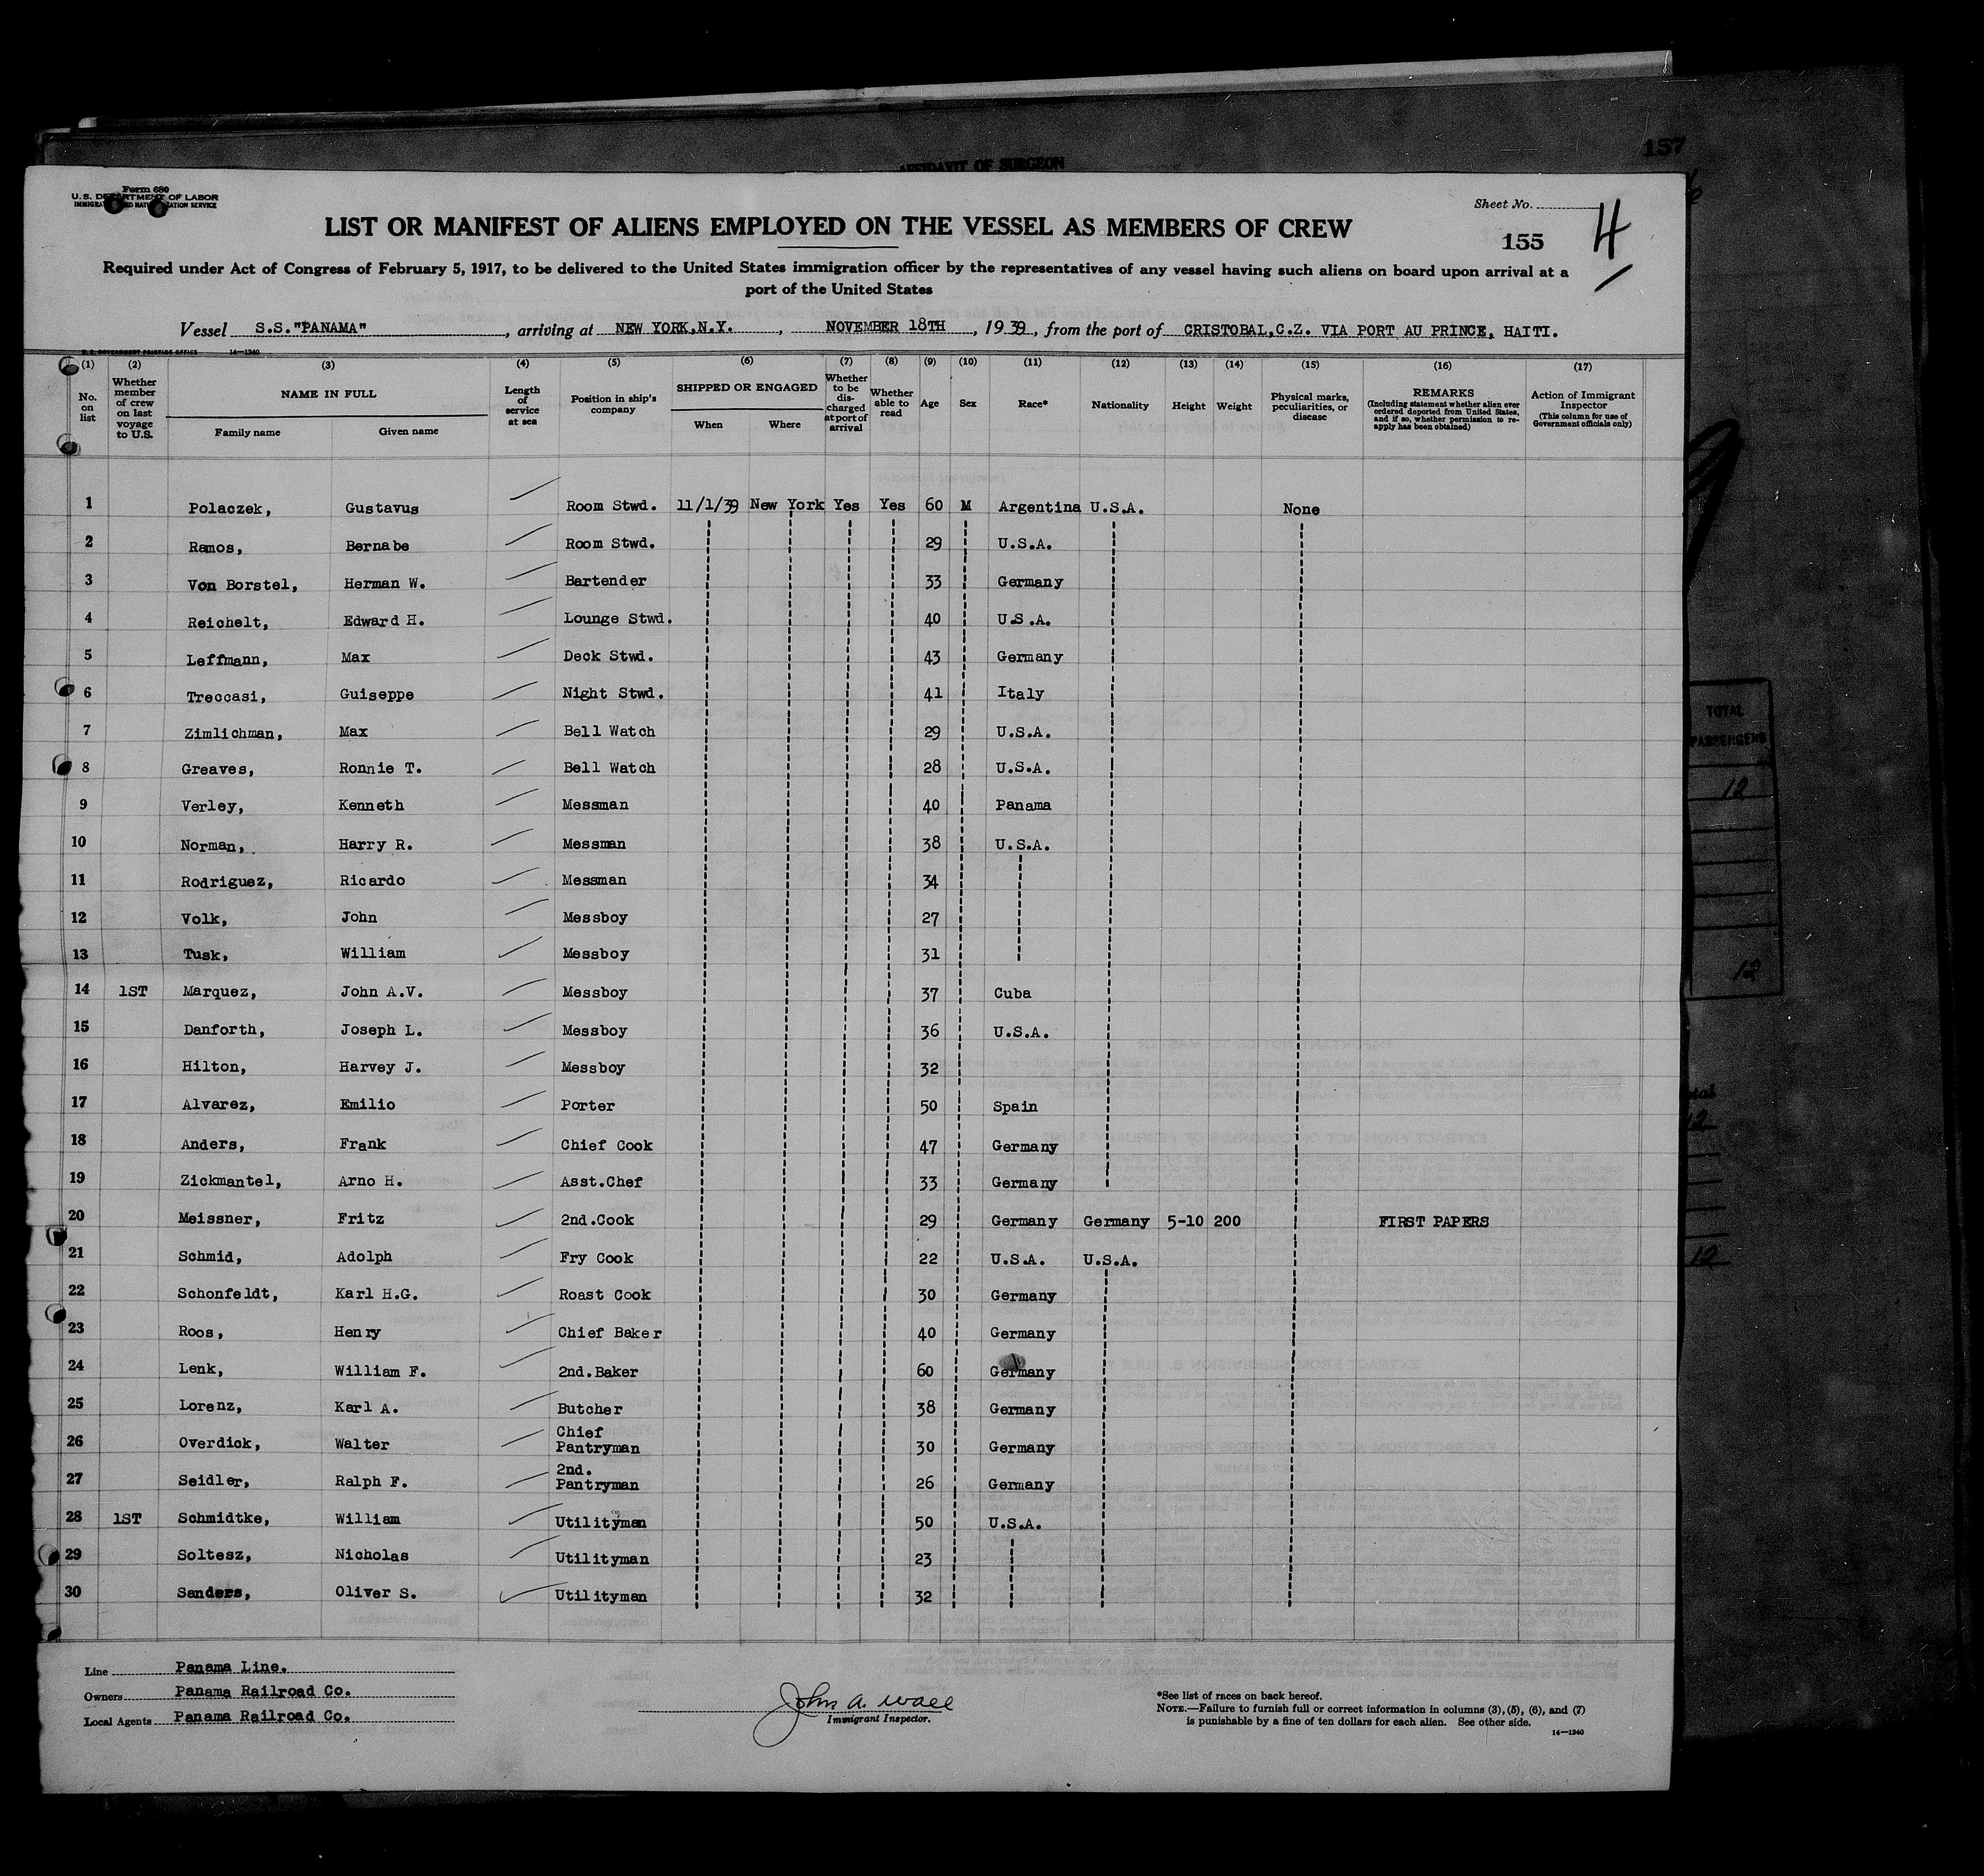 157
AFFIDAVIT OF SURGEON
Form 680
U. S. DEPARTMENT OF LABOR
IMMIGRATION AND NATURALIZATION SERVICE
Sheet No. 4
LIST OR MANIFEST OF ALIENS EMPLOYED ON THE VESSEL AS MEMBERS OF CREW
155
Required under Act of Congress of February 5, 1917, to be delivered to the United States immigration officer by the representatives of any vessel having such aliens on board upon arrival at a
port of the United States
Vessel S.S."PANAMA", arriving at NEW YORK,N.Y., NOVEMBER 18TH, 1939, from the port of CRISTOBAL,C.Z. VIA PORT AU PRINCE, HAITI.
U. S. GOVERNMENT PRINTING OFFICE 14—1240
(1) (2) (3) (4) (5) (6) (7) (8) (9) (10) (11) (12) (13) (14) (15) (16) (17)
No. on list
Whether member of crew on last voyage to U.S.
NAME IN FULL
Family name Given name
Length of service at sea
Position in ship's company
SHIPPED OR ENGAGED
When Where
Whether to be discharged at port of arrival
Whether able to read
Age
Sex
Race*
Nationality
Height
Weight
Physical marks, peculiarities, or disease
REMARKS
(Including statement whether alien ever ordered deported from United States, and if so, whether permission to reapply has been obtained)
Action of Immigrant Inspector
(This column for use of Government officials only)
1 Polaczek, Gustavus Room Stwd. 11/1/39 New York Yes Yes 60 M Argentina U.S.A. None
2 Ramos, Bernabe Room Stwd. 29 U.S.A.
3 Von Borstel, Herman W. Bartender 33 Germany
4 Reichelt, Edward H. Lounge Stwd. 40 U.S.A.
5 Leffmann, Max Deck Stwd. 43 Germany
6 Treccasi, Guiseppe Night Stwd. 41 Italy
7 Zimlichman, Max Bell Watch 29 U.S.A.
8 Greaves, Ronnie T. Bell Watch 28 U.S.A.
9 Verley, Kenneth Messman 40 Panama
10 Norman, Harry R. Messman 38 U.S.A.
11 Rodriguez, Ricardo Messman 34
12 Volk, John Messboy 27
13 Tusk, William Messboy 31
14 1ST Marquez, John A.V. Messboy 37 Cuba
15 Danforth, Joseph L. Messboy 36 U.S.A.
16 Hilton, Harvey J. Messboy 32
17 Alvarez, Emilio Porter 50 Spain
18 Anders, Frank Chief Cook 47 Germany
19 Zickmantel, Arno H. Asst.Chef 33 Germany
20 Meissner, Fritz 2nd.Cook 29 Germany Germany 5-10 200 FIRST PAPERS
21 Schmid, Adolph Fry Cook 22 U.S.A. U.S.A.
22 Schonfeldt, Karl H.G. Roast Cook 30 Germany
23 Roos, Henry Chief Baker 40 Germany
24 Lenk, William F. 2nd.Baker 60 Germany
25 Lorenz, Karl A. Butcher 38 Germany
26 Overdick, Walter Chief Pantryman 30 Germany
27 Seidler, Ralph F. 2nd. Pantryman 26 Germany
28 1ST Schmidtke, William Utilityman 50 U.S.A.
29 Soltesz, Nicholas Utilityman 23
30 Sanders, Oliver S. Utilityman 32
Line Panama Line.
Owners Panama Railroad Co.
Local Agents Panama Railroad Co.
John A. Wall
Immigrant Inspector.
*See list of races on back hereof.
NOTE.—Failure to furnish full or correct information in columns (3), (5), (6), and (7)
is punishable by a fine of ten dollars for each alien. See other side.
14—1240
TOTAL
PASSENGERS
12
12
12